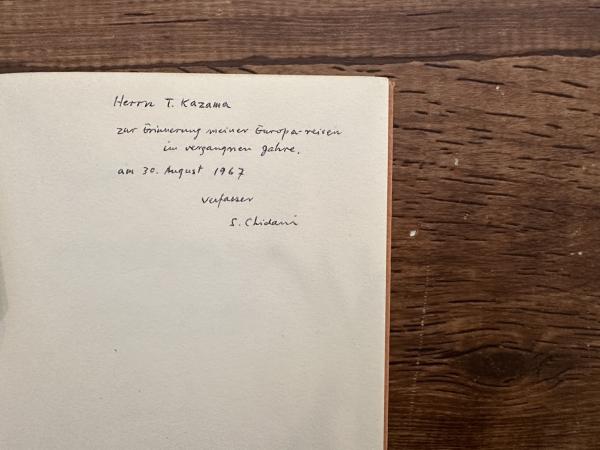 Herrn T. Kazama
zur Erinnerung meiner Europa-reisen
im vergangnen Jahre.
am 30. August 1967
Verfasser
S. Chidani